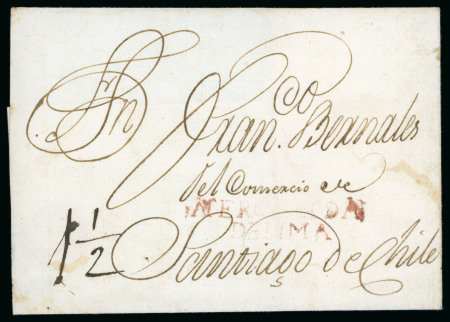 Sn Dn Franco. Bernales
del Comercio de
DE LIMA
1 1/2 Santiago de Chile